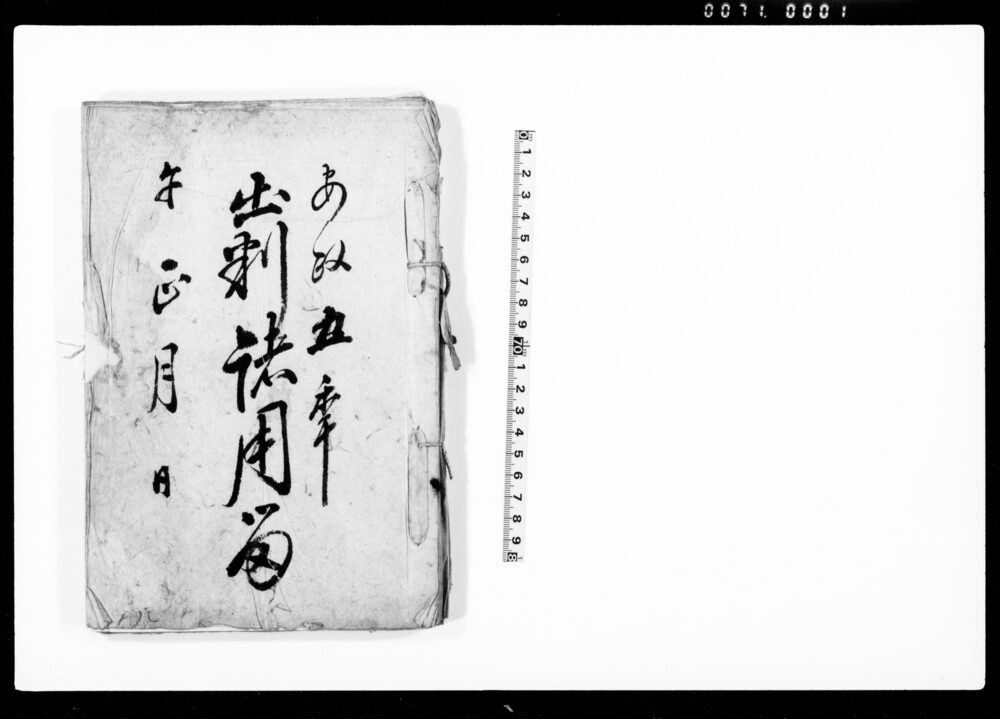 0071. 0001
安政五年
出諸用留
午正月日
0 1 2 3 4 5 6 7 8 9 70 1 2 3 4 5 6 7 8 9 8